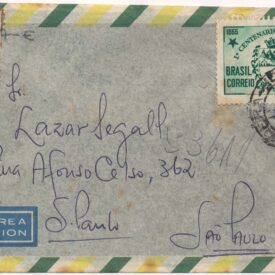 1865
1º CENTENÁRIO
BRASIL
CORREIO
Sr.
Lazar Segall
Rua Afonso Celso, 362
S. Paulo
SÃO PAULO
ÉREA
VION